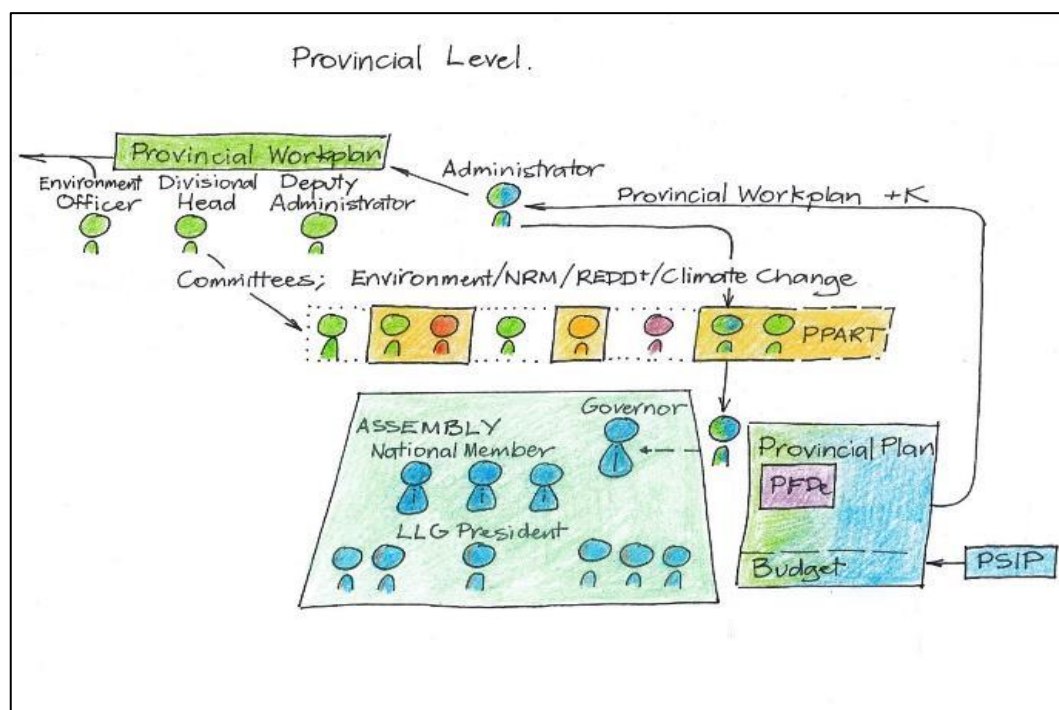 Provincial Level.
Provincial Workplan
Environment Officer
Divisional Head
Deputy Administrator
Administrator
Provincial Workplan +K
Committees; Environment/NRM/REDD+/Climate Change
PPART
ASSEMBLY
Governor
National Member
LLG President
Provincial Plan
PFDC
Budget
PSIP